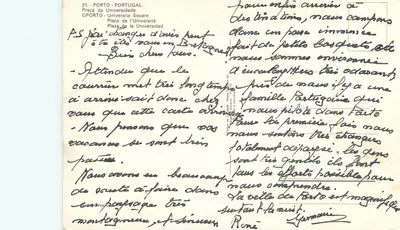 21 - PORTO - PORTUGAL
Praça da Universidade.
OPORTO - University Square.
Place de l'Université.
Plaza de la Universidad.
P.S. j'ai changé d'avis peut
être
Bretagne
Bien chers tous.
- Attendu que le
courrier met très longtemps
à arriver sait donc chez
vous que cette carte
- Nous pensons que vos
vacances se sont très
passées.
Nous avons eu beaucoup
de route à faire dans
un paysage très
montagneux, et sinueux
enfin arrivés à
destination, nous campons
dans un parc immense
fait de petits bosquets et
nous sommes environnés
d'eucalyptus très odorants
près de nous il y a une
famille Portugaise qui
nous pilote dans Porto
Pour la première fois nous
nous sentons très étrangers
totalement dépaysé. les gens
sont très gentils ils font
tous les efforts possible pour
nous comprendre.
La ville de Porto est magnifique
surtout la nuit.
René Germaine